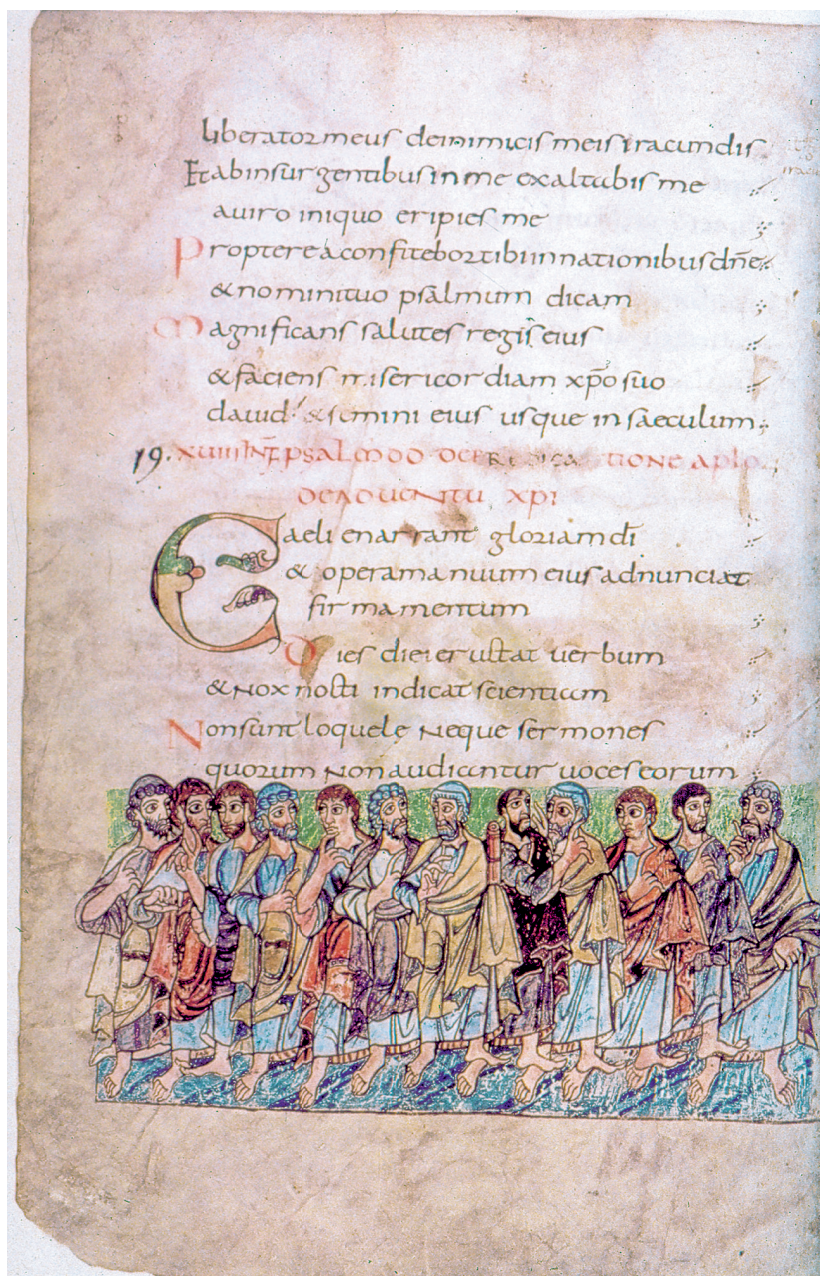 liberator meus deinimicis meis iracundis
Et abinsurgentibus in me exaltabis me
aviro iniquo eripies me
Propterea confitebor tibi in nationibus dn̄e
& nomini tuo psalmum dicam
Magnificans salutes regis eius
& faciens misericordiam xp̄o suo
david & semini eius usque in saeculum
19. XVIIII INT PSALMO DO
DE ADVENTU XPI
Caeli enarrant gloriam dī
& opera manuum eius adnunciat
firmamentum
Dies diei eructat verbum
& nox nocti indicat scientiam
Non sunt loquele neque sermones
quorum non audiantur voces eorum